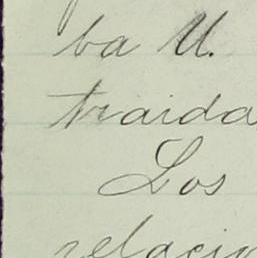 ba U.
traida
Los
relacio